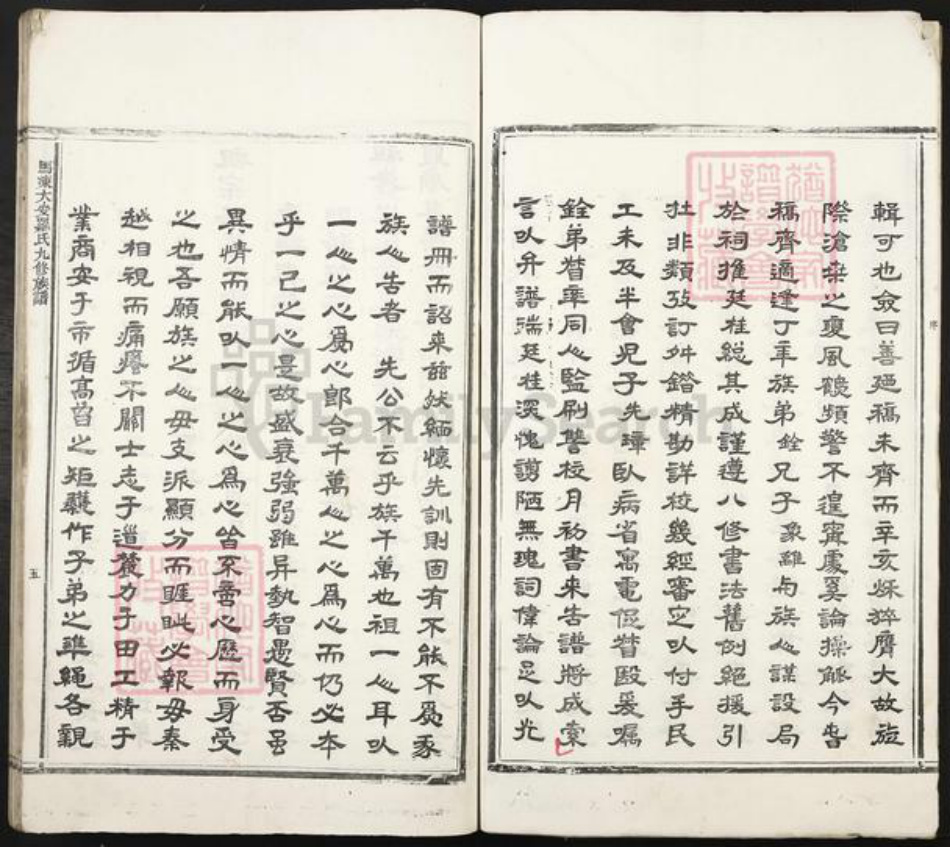 輯可也僉曰善廼稿未齊而辛亥烁猝膺大故旋
際滄桒之變風鶴頻警不遑甯處奚論操觚今皆
稿齊適逢丁年族弟銓兄子象離与族人謀設局
於祠推廷桂総其成謹遵八修書法舊例絕援引
牡非類攷訂舛錯精勘詳校幾經審㝎以付手民
工未及半會児子先璋臥病省寓電促暂毆爰嘱
銓弟督率同人監刷讐校月初書来告譜將成索
言以弁譜耑廷桂深愧謭陋無瑰詞偉論足以光
譜冊而詔来兹然緬懷先訓則固有不能不爲豖
族人告者 先公不云乎族千萬也祖一人耳以
一人之心爲心郎合千萬人之心爲心而仍必本
乎一己之心是故盛衰強弱雖异勢智愚賢否虽
異情而能以一人之心爲心皆不啻心歷而身受
之也吾願族之人毋支派顯分而睚眦必報毋秦
越相視而痛癢不關士志于道農力于田工精于
業商安于市循高曾之矩矱作子弟之準繩各親
大安羅氏九修族譜
五
序
FamilySearch